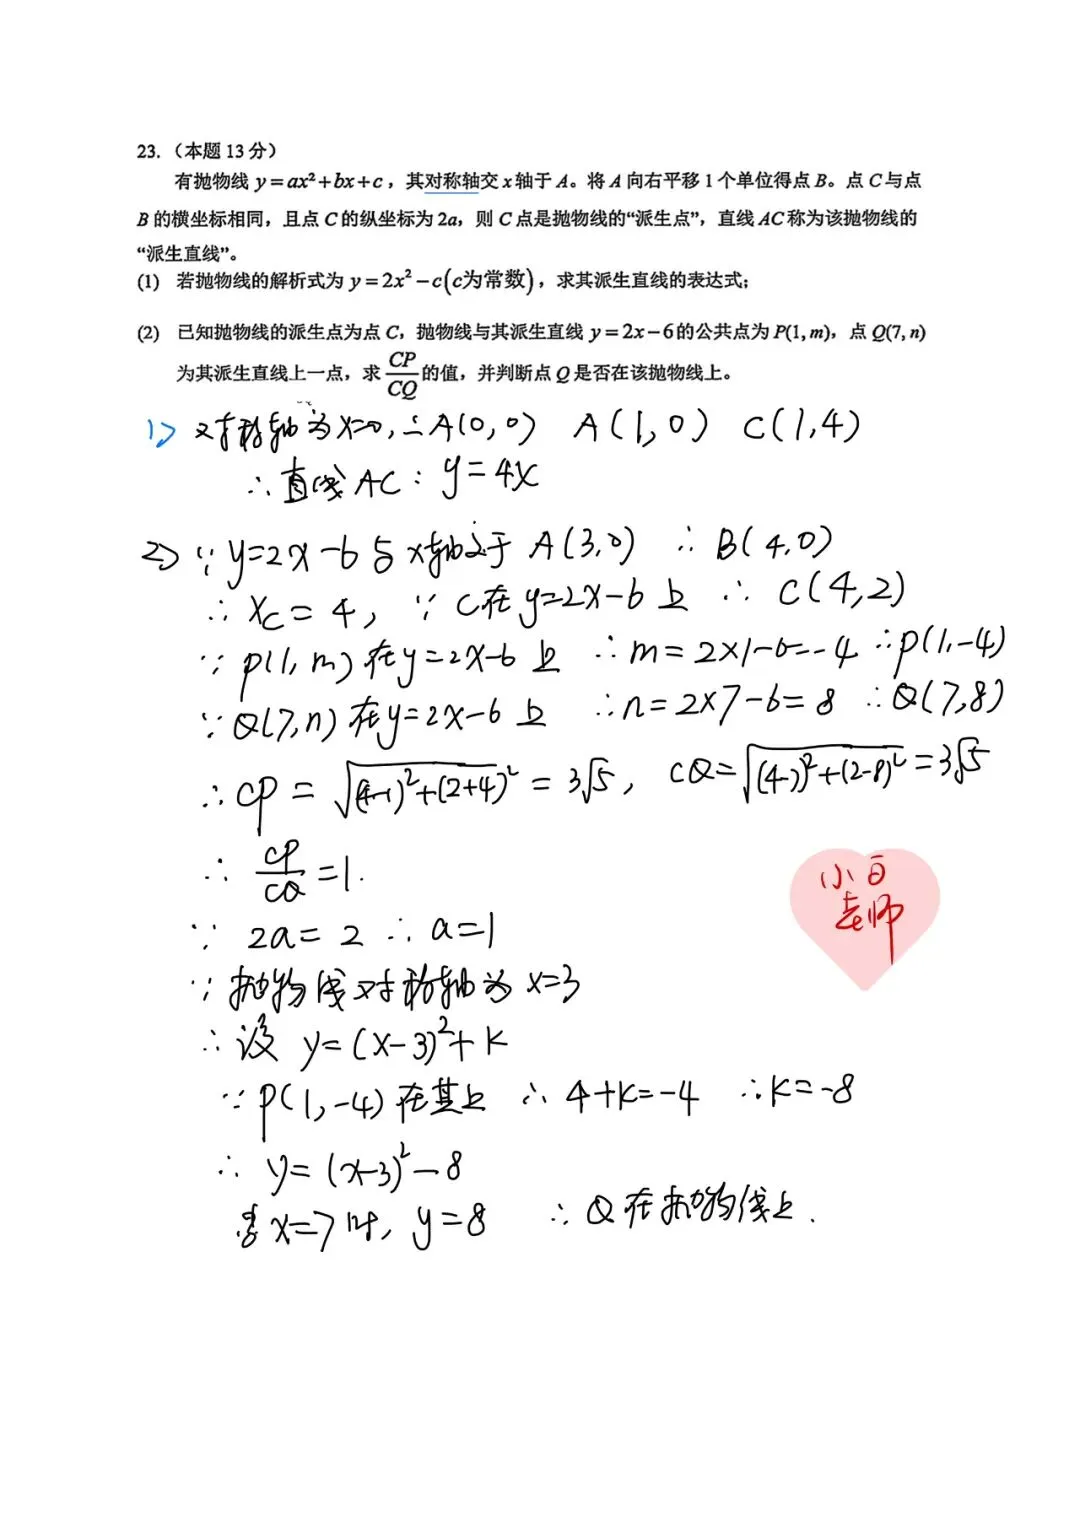 23.（本题 13 分）
有抛物线 y=ax²+bx+c，其对称轴交 x 轴于 A。将 A 向右平移 1 个单位得点 B。点 C 与点
B 的横坐标相同，且点 C 的纵坐标为 2a，则 C 点是抛物线的“派生点”，直线 AC 称为该抛物线的
“派生直线”。
(1) 若抛物线的解析式为 y=2x²-c(c为常数)，求其派生直线的表达式；
(2) 已知抛物线的派生点为点 C，抛物线与其派生直线 y=2x-6 的公共点为 P(1, m)，点 Q(7, n)
为其派生直线上一点，求 CP/CQ 的值，并判断点 Q 是否在该抛物线上。
1) 对称轴为 x=0, ∴A(0,0) A(1,0) C(1,4)
∴直线 AC: y=4x
2) ∵ y=2x-6 与 x轴交于 A(3,0) ∴ B(4,0)
∴ xC=4, ∵ C在 y=2x-6 上 ∴ C(4,2)
∵ P(1,m) 在 y=2x-6 上 ∴m=2×1-6=-4 ∴P(1,-4)
∵Q(7,n) 在 y=2x-6 上 ∴n=2×7-6=8 ∴Q(7,8)
∴CP=√(4-1)²+(2+4)²=3√5, CQ=√(4-7)²+(2-8)²=3√5
∴ CP/CQ=1.
小白
老师
∵ 2a=2 ∴a=1
∵抛物线对称轴为 x=3
∴设 y=(x-3)²+k
∵P(1,-4)在其上 ∴ 4+k=-4 ∴k=-8
∴ y=(x-3)²-8
当 x=7时, y=8 ∴ Q 在抛物线上.